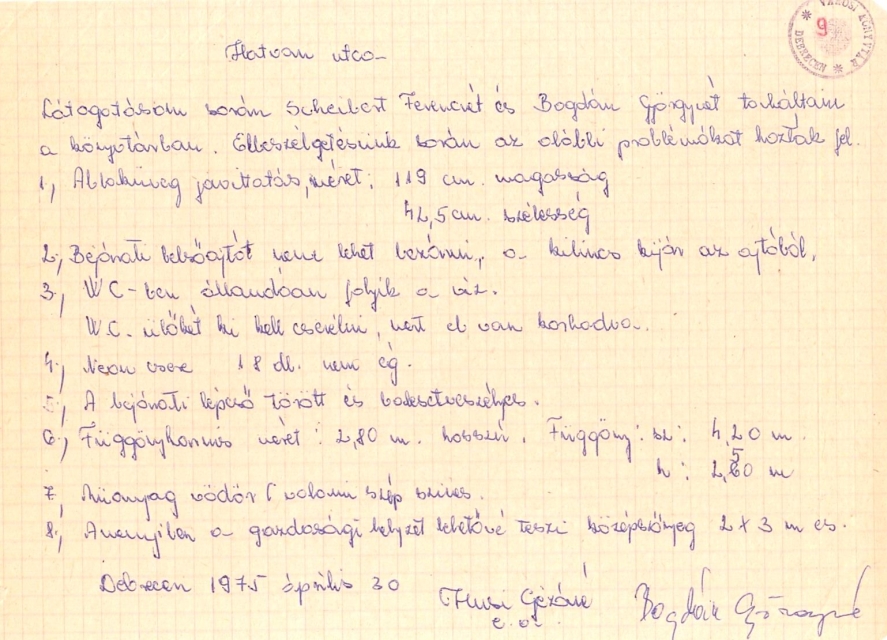 VÁROSI KÖNYVTÁR
DEBRECEN
9
Hatvan utca
Látogatásom során Scheibert Ferencnét és Bogdán Györgynét találtam
a könyvtárban. Elbeszélgetésünk során az alábbi problémákat hozták fel.
1, Ablaküveg javittatás, méret: 119 cm. magasság
42,5 cm. szélesség
2, Bejárati belsőajtót nem lehet bezárni, a kilincs kijár az ajtóból.
3, WC-ben állandóan folyik a víz.
W.C. ülőkét ki kell cserélni, mert el van korhadva.
4, Neon csere 18 db. nem ég.
5, A bejárati lépcső törött és balesetveszélyes.
6, Függönykarnis méret: 2,80 m. hosszú, Függöny: sz: 4,20 m.
h: 2,50 m
7, Műanyag vödör valami szép szines.
8, Amenyiben a gazdasági helyzet lehetővé teszi középszőnyeg 2 x 3 m es.
Debrecen 1975 április 30
Gézáné
Bogdán Györgyné